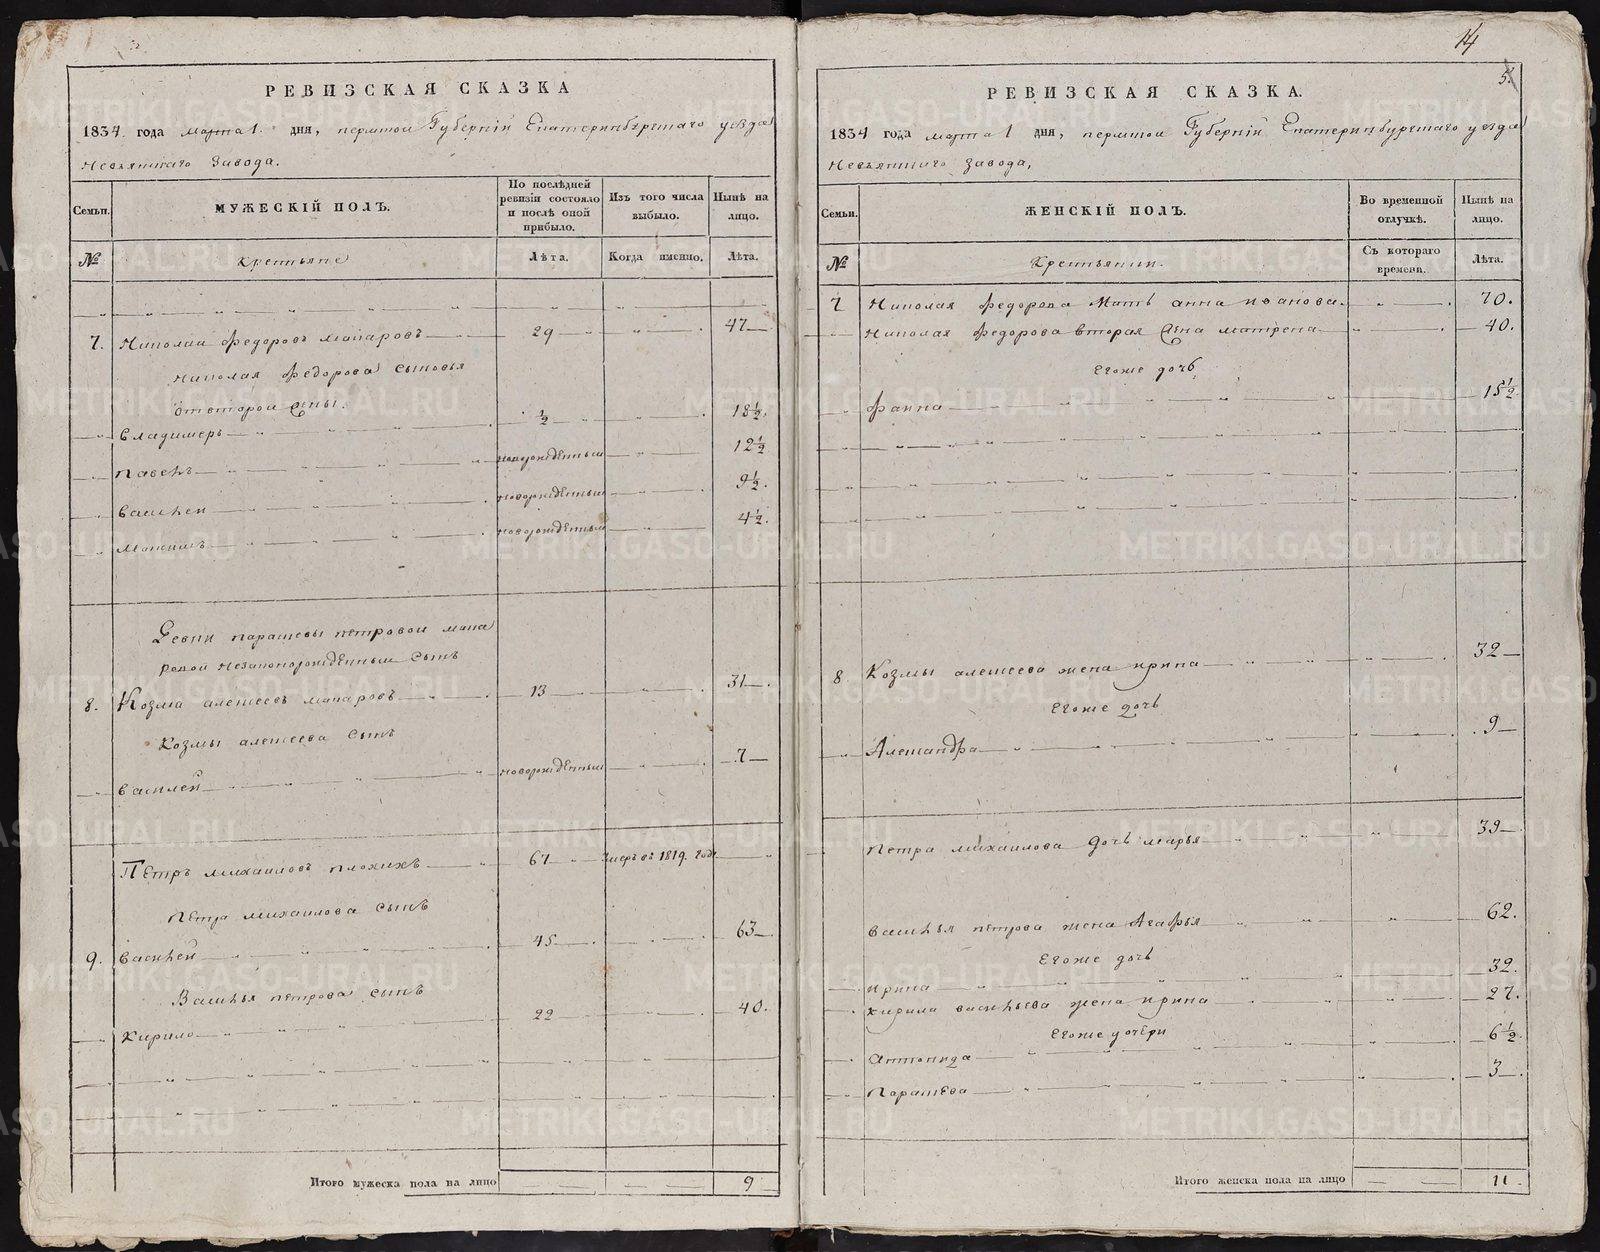 РЕВИЗСКАЯ СКАЗКА
1834 года марта 1 дня, пермской Губернїи Екатеринбургскаго уезда
Невьянскаго Завода.
Семьи.
МУЖЕСКІЙ ПОЛЪ.
По послѣдней ревизіи состояло и послѣ оной прибыло.
Изъ того числа выбыло.
Нынѣ на лицо.
№
Крестьяне
Лѣта.
Когда именно.
Лѣта.
7. Николаи федоровъ макаровъ 29 47
николая федорова сыновья
отвторой жены.
владимеръ ½ 18½.
павелъ новорожденныи 12½
василеи новорожденныи 9½.
максимъ новорожденныи 4½.
Девки парасковьи петровой мака
ровой незаконорожденныи сынъ
8. Козма алексеевъ макаровъ 13 31
Козмы алексеева сынъ
василей новорожденныи 7
Петръ михаиловъ плохихъ 67 умеръ въ 1819. годе
Петра михаилова сынъ
9. василей 45 63
Василья петрова сынъ
кирило 22 40.
Итого мужеска пола на лицо 9
14
5.
РЕВИЗСКАЯ СКАЗКА.
1834 года марта 1 дня, пермской Губернїи Екатеринбургскаго уезда
Невьянскаго завода,
Семьи.
ЖЕНСКІЙ ПОЛЪ.
Во временной отлучкѣ.
Нынѣ на лицо.
№
Крестьянки.
Съ котораго времени.
Лѣта.
7 Николая федорова мать анна иванова 70.
Николая федорова вторая жена матрена 40.
Егоже дочь
фаина 15½
8 Козмы алексеева жена ирина 32
Егоже дочь
Александра 9
Петра михаилова дочь марья 39
василья петрова жена Агафья 62.
Егоже дочь
ирина 32.
кирила васильева жена ирина 27.
Егоже дочери
Антонида 6½
Парасковья 3
Итого женска пола на лицо 11
METRIKI.GASO-URAL.RU